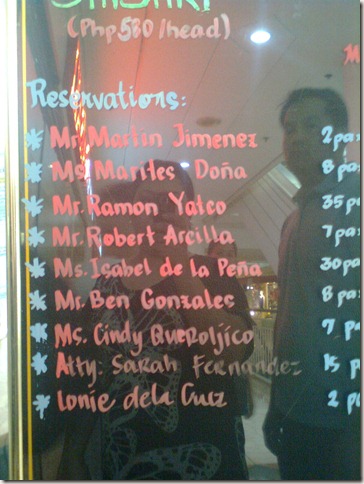 (Php580/head)
Reservations:
* Mr. Martin Jimenez 2 pax
* Ms. Marites Doña 8 pax
* Mr. Ramon Yatco 35 pa
* Mr. Robert Arcilla 7 pax
* Ms. Isabel de la Peña 30 pa
* Mr. Ben Gonzales 8 pax
* Ms. Cindy Queroljico 7 p
* Atty. Sarah Fernandez 15 p
* Lonie dela Cruz 2 p